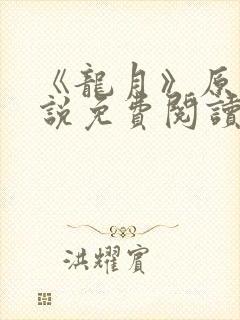 《龍月》原
說免費閱讀
洪耀賓